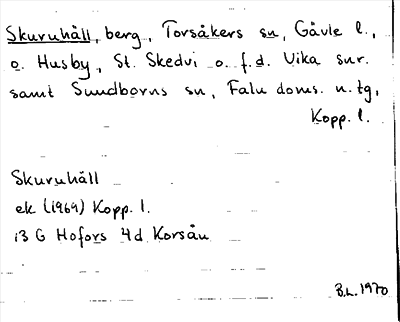 Skuruhäll, berg, Torsåkers sn, Gävle l.,
o. Husby, St. Skedvi o. f.d. Vika snr.
samt Sundborns sn, Falu doms. n. tg,
Kopp. l.
Skuruhäll
ek (1969) Kopp. l.
13 G Hofors 4d Korsån
B.L. 1970